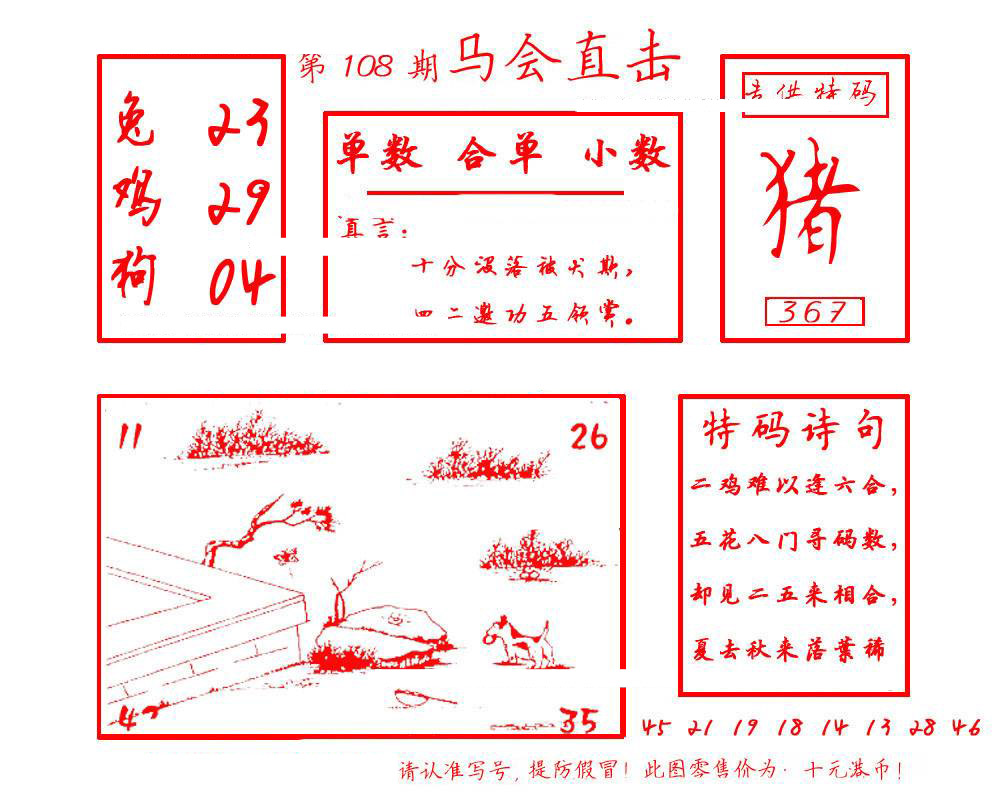 第 108 期 马会直击
兔 23
鸡 29
狗 04
单数 合单 小数
真言:
十分没落被犬欺,
四二邀功五领赏。
供特码
猪
367
11 26
35
特码诗句
二鸡难以逢六合,
五花八门寻码数,
却见二五来相合,
夏去秋来落葉稀
45 21 19 18 14 13 28 46
请认准写号, 提防假冒! 此图零售价为· 十元港币!